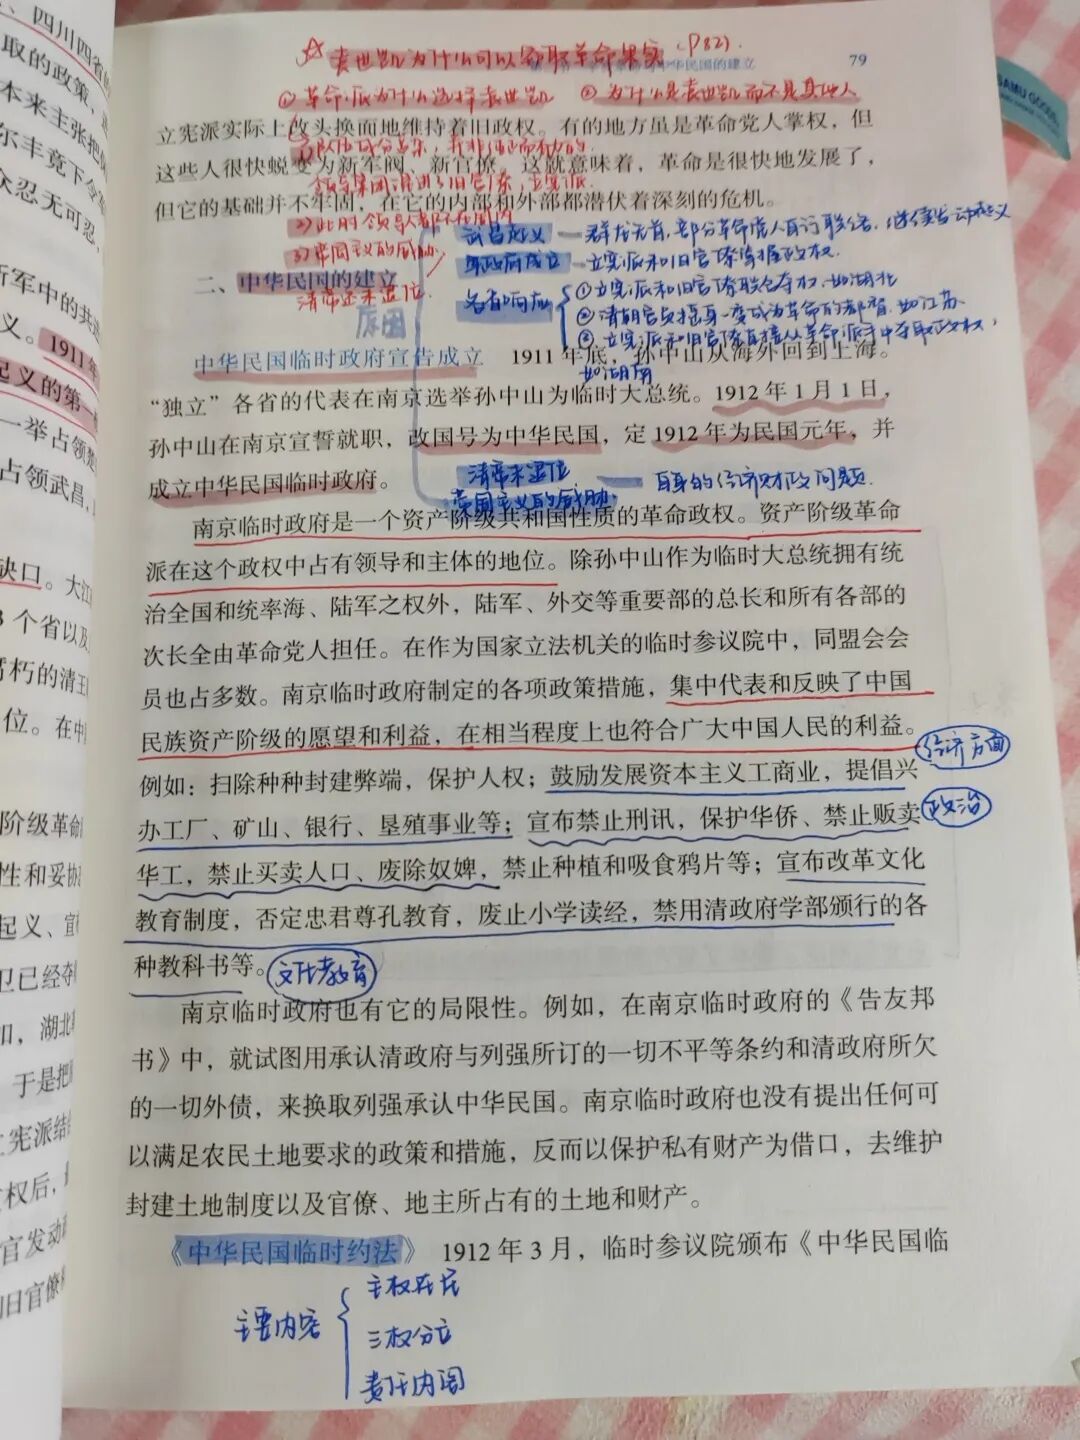 ☆袁世凯为什么可以窃取革命果实（P82）.
中华民国的建立 79
①革命派为什么选择袁世凯 ②为什么是袁世凯而不是其他人
立宪派实际上改头换面地维持着旧政权。有的地方虽是革命党人掌权，但
这些人很快蜕变为新军阀、新官僚。这就意味着，革命是很快地发展了，
领导集团混进了旧官僚，立宪派.
但它的基础并不牢固，在它的内部和外部都潜伏着深刻的危机。
2)此时领导人都不在国内
武昌起义——群龙无首，部分革命党人自行联络，继续发动起义
3)帝国主义的威胁
军政府成立——立宪派和旧官僚掌握政权.
二、中华民国的建立
清帝还未退位.
各省响应
①立宪派和旧官僚联合夺权.如湖北
②清朝官员摇身一变成为革命的都督.如江苏
③立宪派和旧官僚直接从革命派手中夺取政权，
如湖南
原因
中华民国临时政府宣告成立 1911年底，孙中山从海外回到上海。
“独立”各省的代表在南京选举孙中山为临时大总统。1912年1月1日，
孙中山在南京宣誓就职，改国号为中华民国，定1912年为民国元年，并
成立中华民国临时政府。
清帝未退位
帝国主义的威胁——自身的经济财政问题.
南京临时政府是一个资产阶级共和国性质的革命政权。资产阶级革命
派在这个政权中占有领导和主体的地位。除孙中山作为临时大总统拥有统
治全国和统率海、陆军之权外，陆军、外交等重要部的总长和所有各部的
次长全由革命党人担任。在作为国家立法机关的临时参议院中，同盟会会
员也占多数。南京临时政府制定的各项政策措施，集中代表和反映了中国
民族资产阶级的愿望和利益，在相当程度上也符合广大中国人民的利益。
经济方面
例如：扫除种种封建弊端，保护人权；鼓励发展资本主义工商业，提倡兴
办工厂、矿山、银行、垦殖事业等；宣布禁止刑讯，保护华侨、禁止贩卖
政治
华工，禁止买卖人口、废除奴婢，禁止种植和吸食鸦片等；宣布改革文化
教育制度，否定忠君尊孔教育，废止小学读经，禁用清政府学部颁行的各
种教科书等。
文化教育
南京临时政府也有它的局限性。例如，在南京临时政府的《告友邦
书》中，就试图用承认清政府与列强所订的一切不平等条约和清政府所欠
的一切外债，来换取列强承认中华民国。南京临时政府也没有提出任何可
以满足农民土地要求的政策和措施，反而以保护私有财产为借口，去维护
封建土地制度以及官僚、地主所占有的土地和财产。
《中华民国临时约法》 1912年3月，临时参议院颁布《中华民国临
主要内容
主权在民
三权分立
责任内阁